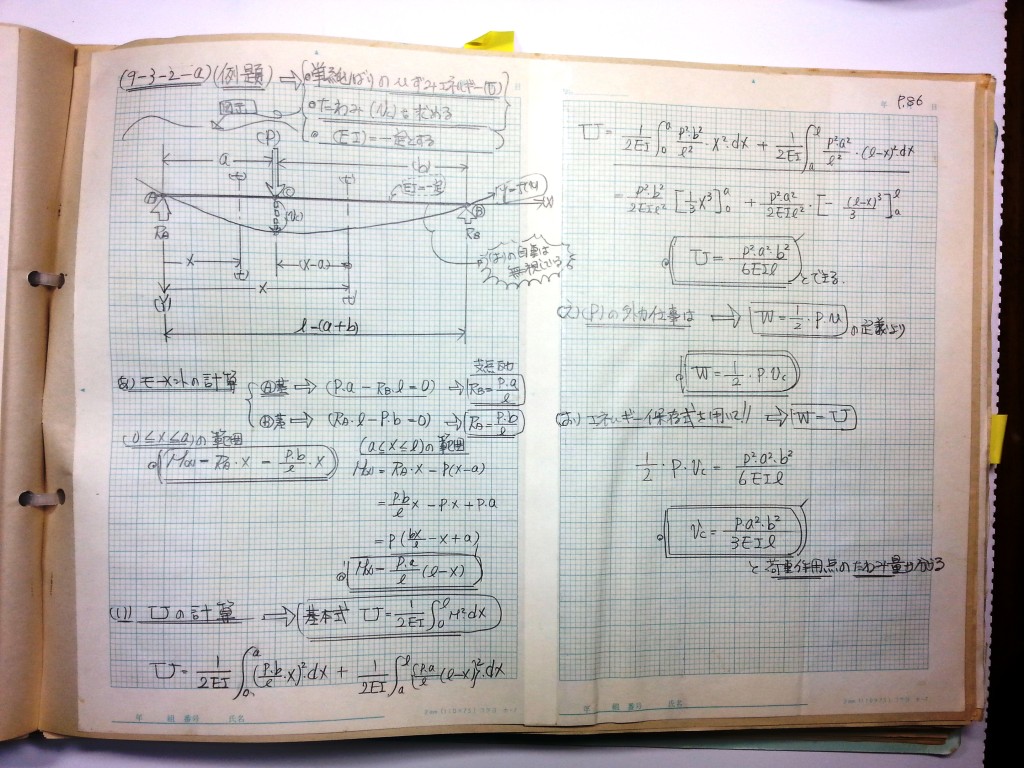 (9-3-2-a)(例題) ⇒ 単純ばりのひずみエネルギー(U)
・たわみ(Vc)を求める
・(EI)=一定とする
(P)
a
(b)
EI=一定
A
C
B
(x)
(Vc)
RA
RB
x
(x-a)
ばりの自重は
無視している
x
(Y)
l=(a+b)
(あ) モーメントの計算
支点反力
Ⓐ基 ⇒ (P・a-RB・l=0) → RB=P・a/l
Ⓑ基 ⇒ (RA・l-P・b=0) → RA=P・b/l
(0≦x≦a)の範囲
M(x)=RA・x=P・b/l・x
(a≦x≦l)の範囲
M(x)=RA・x-P(x-a)
=P・b/l x-Px+P・a
=P(bx/l-x+a)
M(x)=P・a/l(l-x)
(い) Uの計算 ⇒ 基本式 U=1/2EI∫₀ˡM²dx
U=1/2EI∫₀ᵃ(P・b/l・x)²・dx+1/2EI∫ₐˡ{P・a/l(l-x)}²・dx
年 組 番号 氏名
P.86
U=1/2EI∫₀ᵃP²・b²/l²・x²・dx+1/2EI∫ₐˡP²・a²/l²・(l-x)²dx
=P²・b²/2EIl²[1/3x³]₀ᵃ+P²・a²/2EIl²・[-(l-x)³/3]ₐˡ
U=P²・a²・b²/6EIl
とできる.
(え)(P)の外力仕事は ⇒ W=1/2・P・u の定義より
W=1/2・P・Vc
(お)エネルギー保存式を用いて!! ⇒ W=U
1/2・P・Vc=P²a²・b²/6EIl
Vc=P・a²・b²/3EIl
と荷重作用点のたわみ量が分る
年 組 番号 氏名